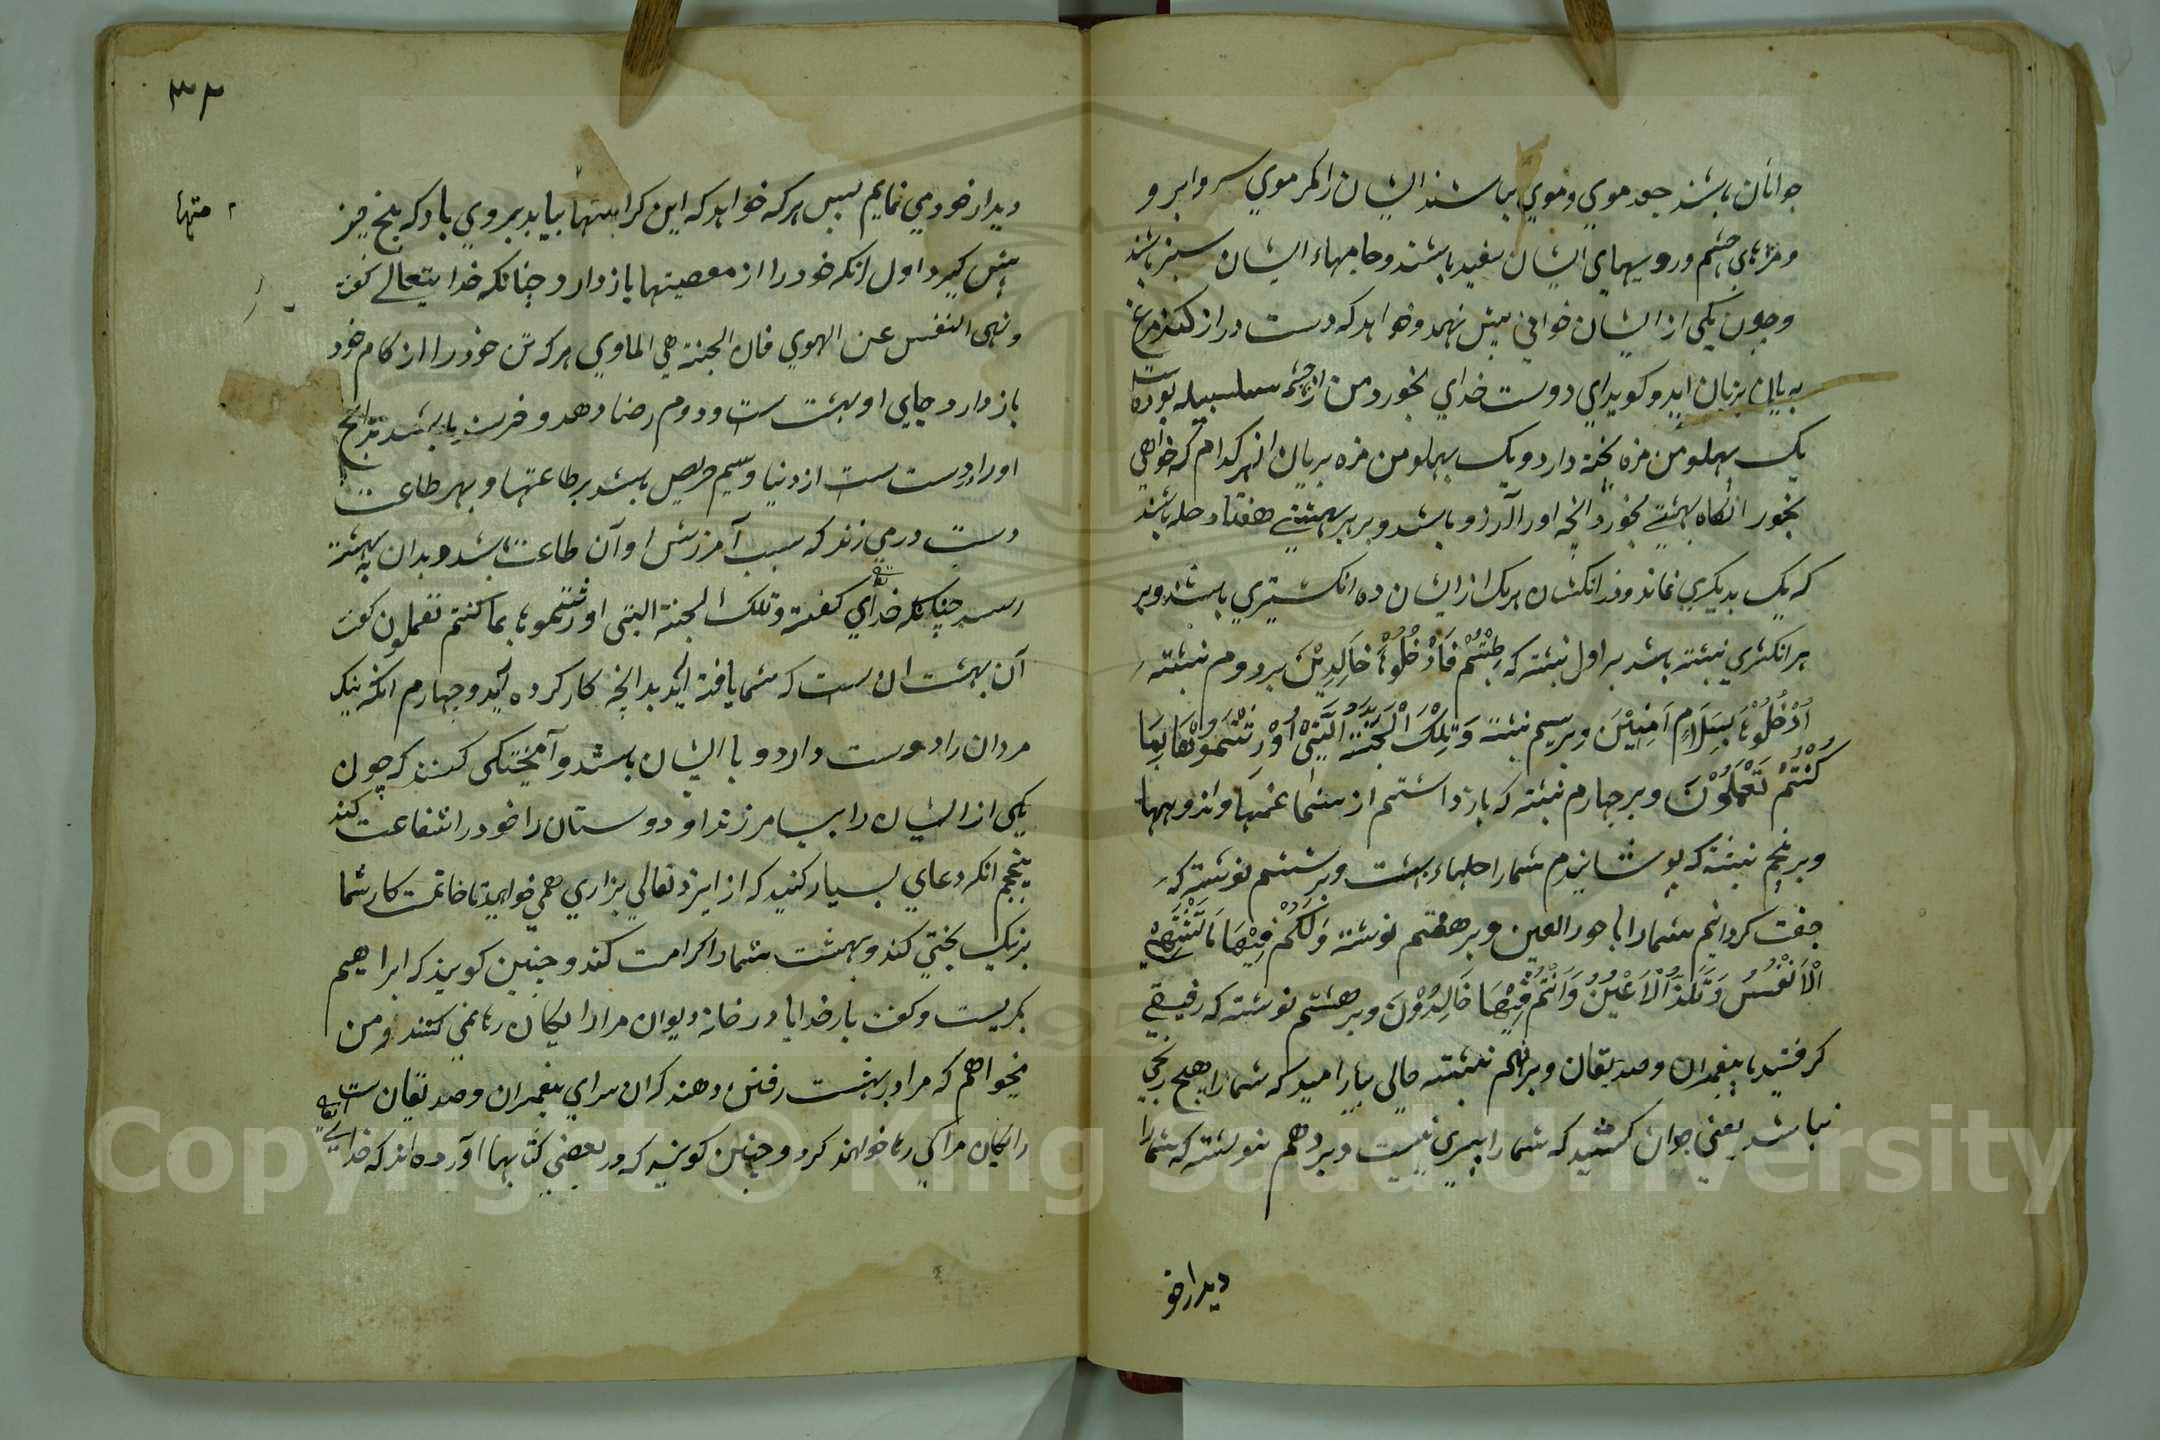 جوانان باشند جعد موي و موي نباشند ایشان را مکر موي سر و ابرو
و مژهاي چشم و رویهاي ایشان سفید باشند و جامهاء ایشان سبز باشند
و چون یکی از ایشان خواني پیش نهد و خواهد که دست دراز کند مرغ
بریان بزبان اید و کوید اي دوست خداي بخور از من از چشمه سلسبیل
یک پهلو من مزه پخته دارد و یک پهلو من مزه بریان از هر کدام که خواهي
بخور انکاه بهشتي بخورد انچه او را ارزو باشد و بر هر بهشتي هفتاد حله باشد
که یک بدیکري نماند و در انکشتان هر یک از ایشان ده انکشتري باشد و بر
هر انکشتري نبشته باشد بر اول نبشته که طِبْتُمْ فَادْخُلُوْهَا خَالِدِيْنَ بر دوم نبشته
اُدْخُلُوْهَا بِسَلَامٍ اٰمِنِيْنَ و بر سیم نبشته وَتِلْكَ الْجَنَّةُ الَّتِيْ اُوْرِثْتُمُوْهَا بِمَا
كُنْتُمْ تَعْمَلُوْنَ و بر چهارم نبشته که باز داشتم از شما غمها و اندوهها
و بر پنجم نبشته که پوشانیدم شما را حلهاء بهشت و بر ششم نوشته که
جفت کردانیم شما را با حور العین و بر هفتم نوشته وَلَكُمْ فِيْهَا مَا تَشْتَهِيْ
الْاَنْفُسُ وَتَلَذُّ الْاَعْيُنُ وَاَنْتُمْ فِيْهَا خَالِدُوْنَ و بر هشتم نوشته که رفیقي
کرفتید با پیغمبران و صدیقان و بر نهم نبشته که شما را هیچ رنجي
نباشد یعني جوان کشتید که شما را پیري نیست و بر دهم نوشته که شما را
دیدار خو
۳۴
منتها
دیدار خود مي نمایم سپس هر که خواهد که این کرامتها بیابد بروي باد که پنج چیز
پیش کیرد اول انکه خود را از معصیتها باز دارد چنانکه خدایتعالے کفت
ونهى النفس عن الهوي فان الجنة هي الماوي هر که تن خود را از کام خود
باز دارد جاي او بهشت ست و دوم رضا دهد و خرسند باشد بدانچ
او را دست ست از دنیا و سیم حریص باشد بر طاعتها و بهر طاعت
دست در مي زند که سبب آمرزش او آن طاعت باشد و بدان به بهشت
رسد چنانکه خداي تعالی کفته وتلك الجنة التى اورثتموها بما كنتم تعملون کفت
آن بهشت ان ست که شما یافته اید بدانچه کار کرده اید و چهارم انکه نیک
مردان را دوست دارد و با ایشان باشد و آمیختکی کنند که چون
یکی از ایشان را بیامرزند او دوستان را خود را شفاعت کند
پنجم انکه دعاي بسیار کنید که از ایزد تعالي بزاري همي خواهید تا خاتمت کار شما
بر نیک بختي کند و بهشت شما را کرامت کند و چنین کویند که ابراهیم
بکریست و کفت بار خدایا در خانه دیوان مرا رایکان رها نمي کنند و من
میخواهم که مرا در بهشت رفتن دهند که ان سراي پیغمبران و صدیقان ست
رایکان مرا کي رها خواهند کرد و چنین کویند که در بعضي کتابها آورده اند که خداي تعالی
Copyright © King Saud University